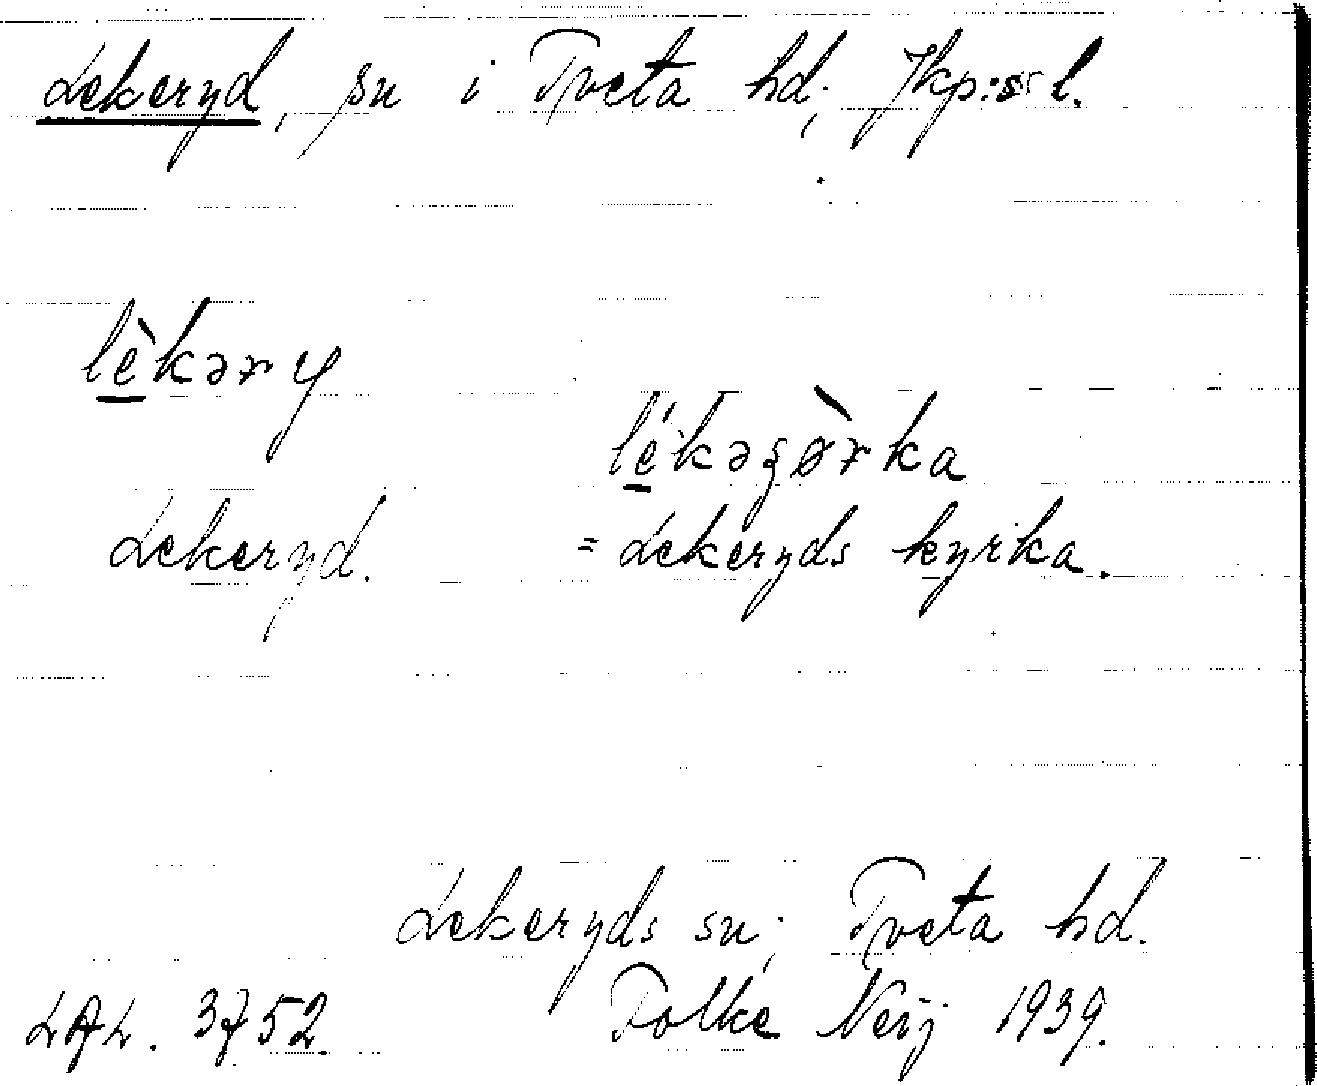 Lekeryd, sn i Tveta hd, Jkp:s l.
lèkəry
lékəşø̀rka
Lekeryd.
= Lekeryds kyrka.
Lekeryds sn, Tveta hd.
LAL. 3752.
Folke Neij 1939.